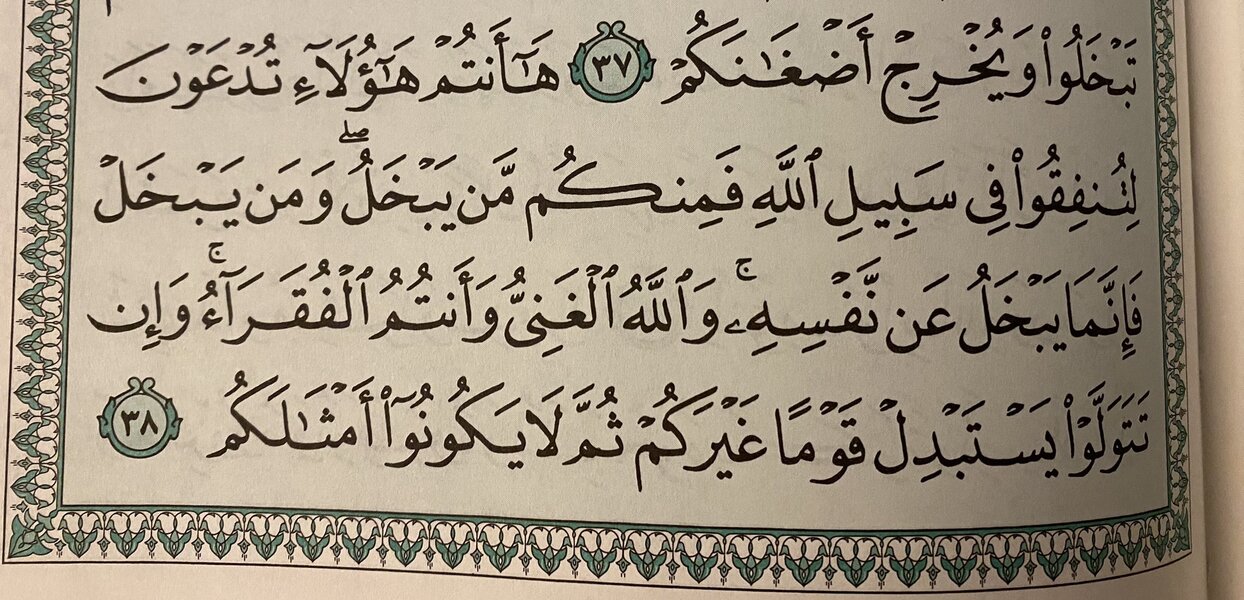 تَبْخَلُوا۟ وَيُخْرِجْ أَضْغَـٰنَكُمْ ٣٧ هَـٰٓأَنتُمْ هَـٰٓؤُلَآءِ تُدْعَوْنَ
لِتُنفِقُوا۟ فِى سَبِيلِ ٱللَّهِ فَمِنكُم مَّن يَبْخَلُ ۖ وَمَن يَبْخَلْ
فَإِنَّمَا يَبْخَلُ عَن نَّفْسِهِۦ ۚ وَٱللَّهُ ٱلْغَنِىُّ وَأَنتُمُ ٱلْفُقَرَآءُ ۚ وَإِن
تَتَوَلَّوْا۟ يَسْتَبْدِلْ قَوْمًا غَيْرَكُمْ ثُمَّ لَا يَكُونُوٓا۟ أَمْثَـٰلَكُم ٣٨